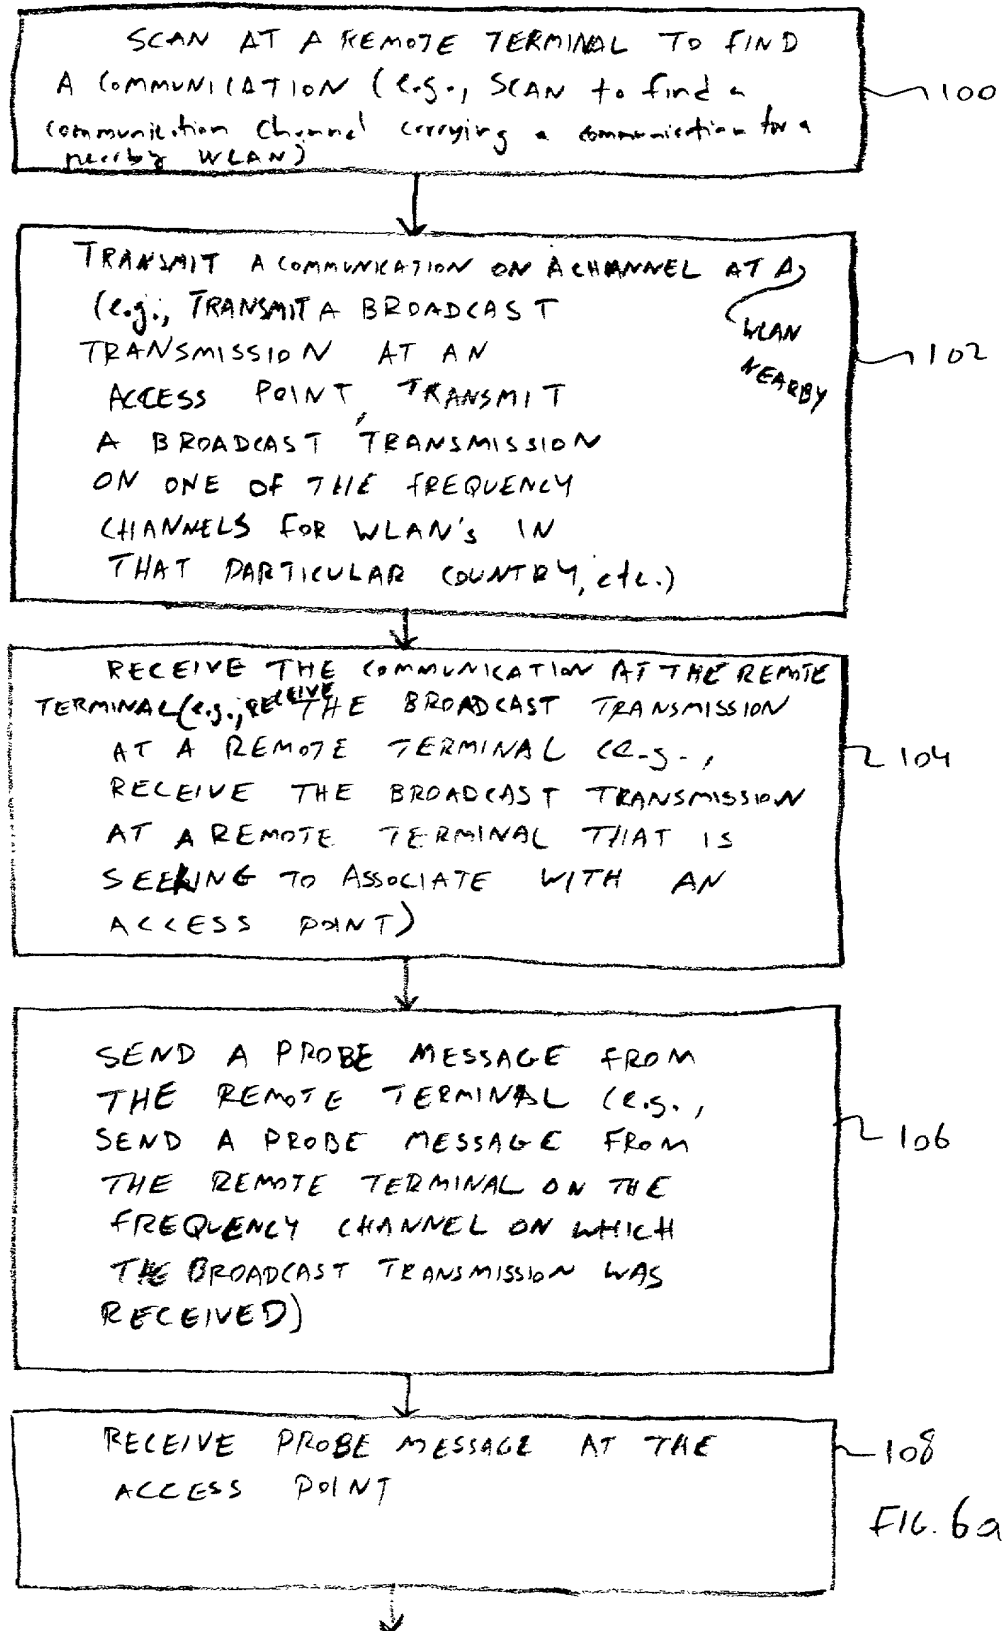 SCAN AT A REMOTE TERMINAL TO FIND
A COMMUNICATION (e.g., SCAN to find a
communication channel carrying a communication for a
nearby WLAN)
100
TRANSMIT A COMMUNICATION ON A CHANNEL AT A
(e.g., TRANSMIT A BROADCAST
WLAN
TRANSMISSION AT AN
NEARBY
102
ACCESS POINT, TRANSMIT
A BROADCAST TRANSMISSION
ON ONE OF THE FREQUENCY
CHANNELS FOR WLAN's IN
THAT PARTICULAR COUNTRY, etc.)
RECEIVE THE COMMUNICATION AT THE REMOTE
TERMINAL (e.g., RECEIVE THE BROADCAST TRANSMISSION
AT A REMOTE TERMINAL (e.g.,
104
RECEIVE THE BROADCAST TRANSMISSION
AT A REMOTE TERMINAL THAT IS
SEEKING TO ASSOCIATE WITH AN
ACCESS POINT)
SEND A PROBE MESSAGE FROM
THE REMOTE TERMINAL (e.g.,
SEND A PROBE MESSAGE FROM
106
THE REMOTE TERMINAL ON THE
FREQUENCY CHANNEL ON WHICH
THE BROADCAST TRANSMISSION WAS
RECEIVED)
RECEIVE PROBE MESSAGE AT THE
108
ACCESS POINT
FIG. 6a